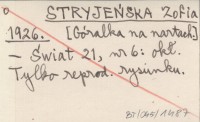 STRYJEŃSKA Zofia
1926. [Góralka na nartach]
— Świat 21, nr 6: okł.
Tylko reprod. rysunku.
BJ/045/1487